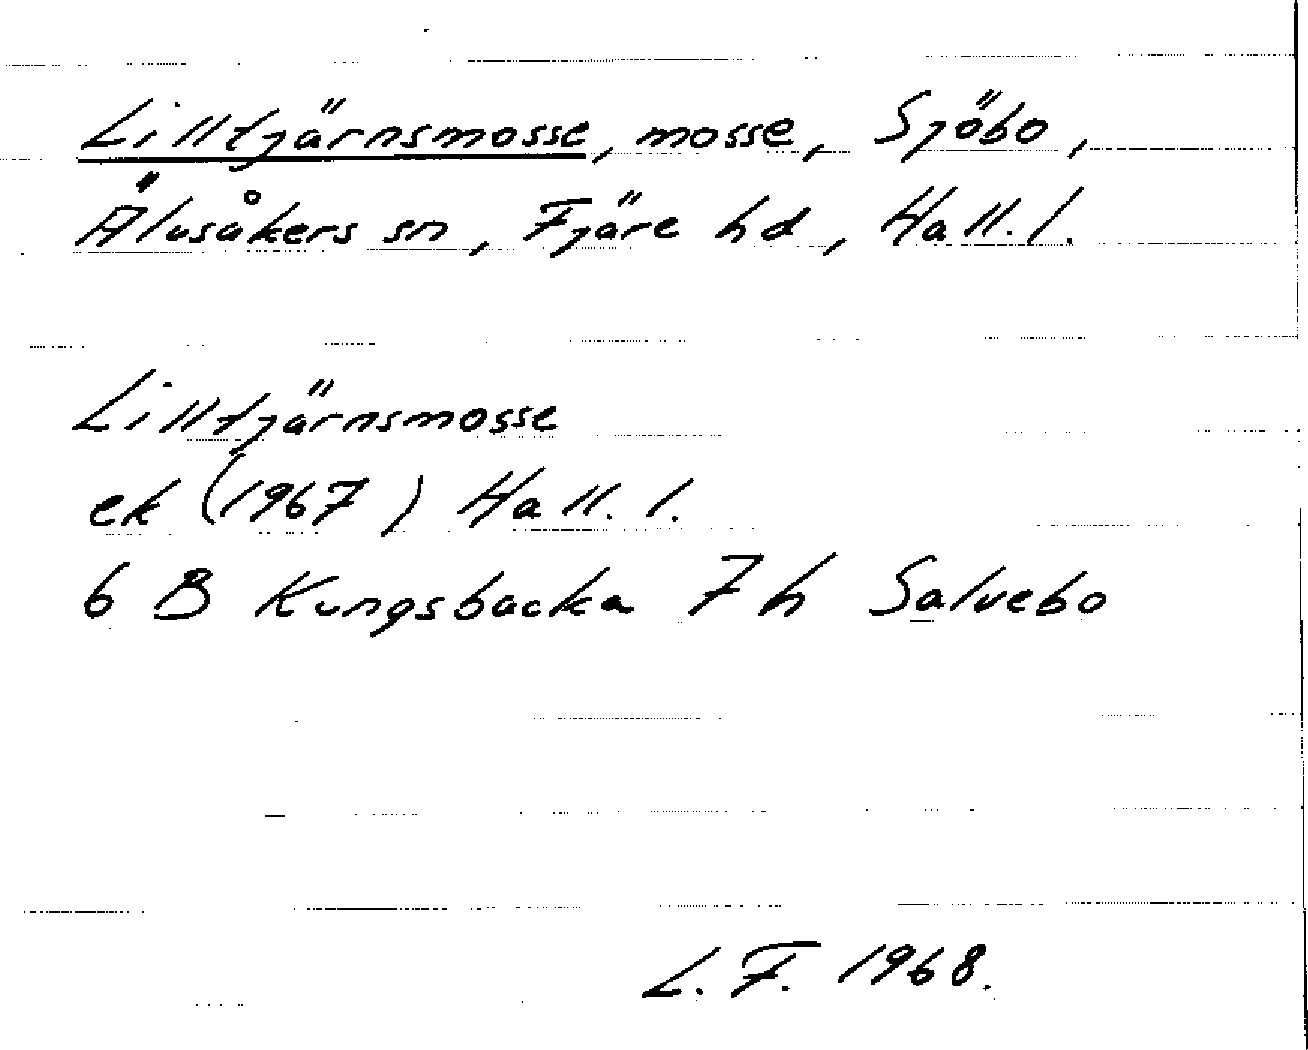 Lilltjärnsmosse, mosse, Sjöbo,
Älvsåkers sn, Fjäre hd, Hall. l.
Lilltjärnsmosse
ek (1967) Hall. l.
6 B Kungsbacka 7 h Salvebo
L. F. 1968.